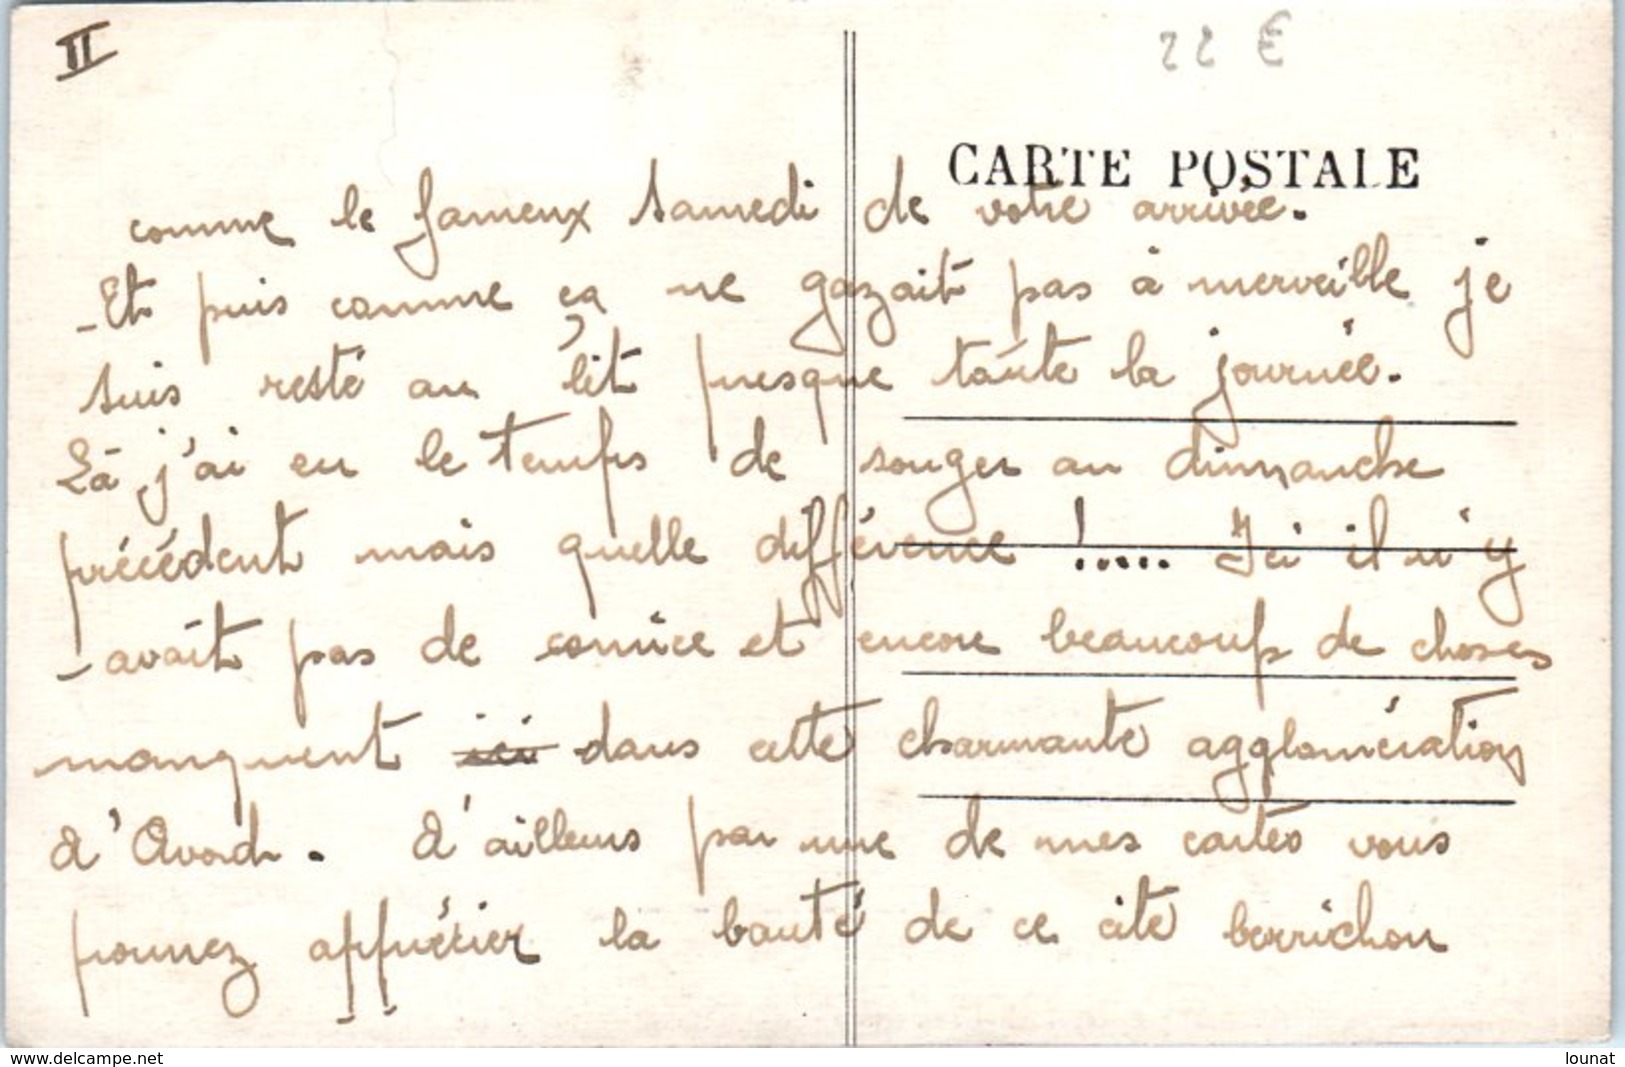 II
22 €
CARTE POSTALE
comme le fameux samedi de votre arrivée.
-Et puis comme ça ne gazait pas à merveille je
suis resté au lit presque toute la journée.
Là j'ai eu le temps de songer au dimanche
précédent mais quelle différence !..... Ici il n'y
-avait pas de comice et encore beaucoup de choses
manquent ici dans cette charmante agglomération
d'Avord. D'ailleurs par une de mes cartes vous
pourrez apprécier la bauté de ce cité berrichon
www.delcampe.net
lounat